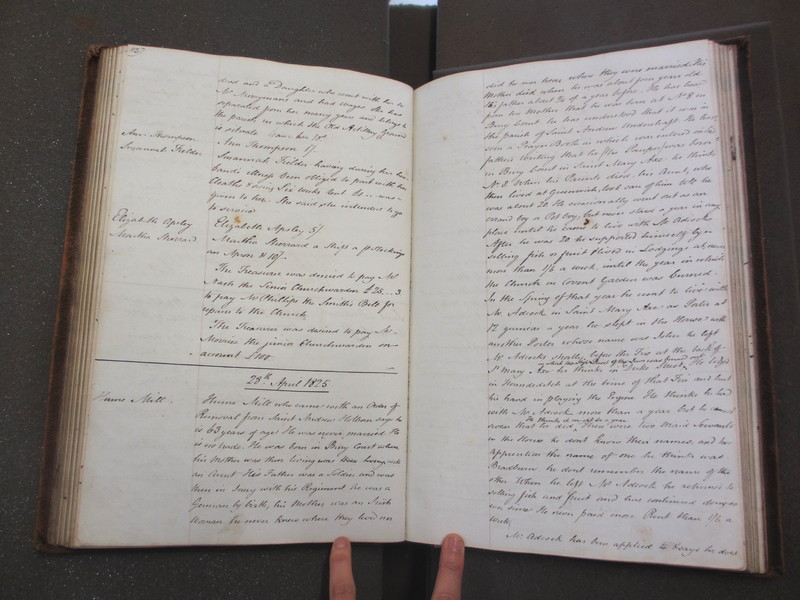 died and a Daughter who went with her to
Mr Merrymans and had wages He has
separated from her many years and belongs to
the parish in which the Old Artillery Ground
is situate
Ann Thompson
Ann Thompson 5/
Susannah Fielder
Susannah Fielder having during her hus-
bands illness been obliged to part with her
Cloaths & owing Six weeks Rent £1 was
given to her She said she intended to go
to service
Elizabeth Apsley
Elizabeth Apsley 5/
Martha Sherrard
Martha Sherrard a Shift a pr Stockings
an Apron & 10/
The Treasurer was desired to pay Mr
Nash the Senior Churchwarden £25
to pay Mr Phillips the Smith's Bill for
repairs to the Church
The Treasurer was desired to pay Mr
Morris the junior Churchwarden on
account £100
28th April 1825
Mill
Mill who came with an Order of
Removal from Saint Andrew Holborn says he
is 63 years of age He was never married He
is no trade He was born in Bury Court where
his Mother was then living with
an Aunt His Father was a Soldier and was
then in with his Regiment he was a
German by birth, his Mother was an Irish
Woman he never knew where they lived nor
died he was here where they were married His
Mother died when he was about four years old
His father about ¾ of a year before He has heard
from his Mother that he was born at No 8 in
Bury Court he has understood that it was in
the parish of Saint Andrew Undershaft He has
seen a Prayer Book in which was entered in his
father's writing that he (the Pauper) was born
in Bury Court in Saint Mary Axe he thinks
No 8 When his Parents died his Aunt, who
then lived at Greenwich, took care of him till he
was about 20 He occasionally went out as an
errand boy a Pot boy but never stayed a year in any
place until he came to live with Mr Adcock
After he was 20 he supported himself by
selling fish & fruit & lived in Lodgings at never
more than 1/6 a week until the year in which
the Church in Covent Garden was burned
In the Spring of that year he went to live with
Mr Adcock in Saint Mary Axe as Porter at
12 guineas a year he slept in the House with
another Porter whose name was John he left
Mr Adcocks shortly before the Fire at the back of
St Mary Axe he thinks in Dukes Street He lodged
in Houndsditch at the time of that Fire and had
his hand in playing the Engine He thinks he lived
with Mr Adcock more than a year but he
aver that he did
He thinks
There were two Maid Servants
in the House he dont know their names, and has
apprehension the name of one he thinks was
Bradburn he dont remember the name of the
other When he left Mr Adcock he returned to
selling fish and fruit and has continued doing so
ever since He never paid more Rent than 1/6 a
week
Mr Adcock has been applied to & says he does